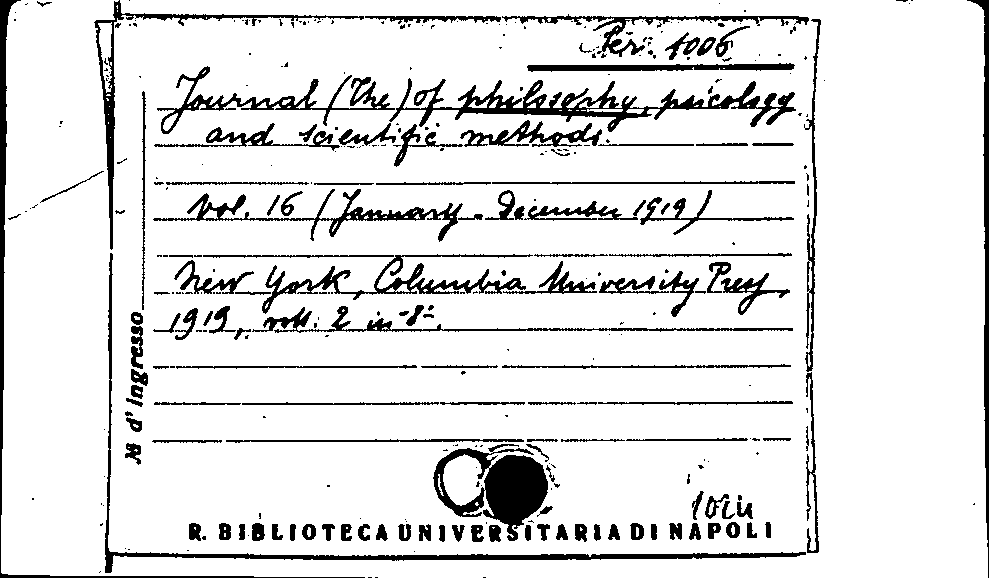 Per. 1006
Journal (The) of philosophy, psicology
and scientific methods.
Vol. 16 (January - December 1919)
New York, Columbia University Press,
1919, voll. 2 in-8°.
N. d'ingresso
R. BIBLIOTECA UNIVERSITARIA DI NAPOLI